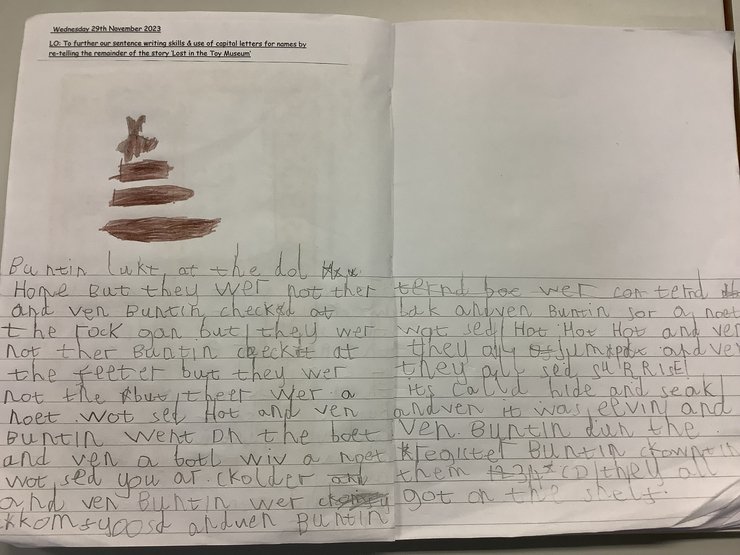 Wednesday 29th November 2023
LO: To further our sentence writing skills & use of capital letters for names by
re-telling the remainder of the story 'Lost in the Toy Museum'
Buntin lukt at the dol
Home But they wer not ther
and ven Buntin checkd at
the rock gan but they wer
not ther Buntin checkt at
the feeter but they wer
not the but theer wer a
noet. wot sed Hot and ven
Buntin went on the boet
and ven a botl wiv a noet
wot sed you ar ckolder
and ven Buntin wer
kkomfyoosd andven Buntin
ternd boc wer conternd
bak andven Buntin sor a noet
wot sed Hot Hot Hot and ven
they all jumpt and ve
they all sed SURRISE!
its calld hide and seak
andven it was eevin and
ven Buntin dun the
register Buntin ckownt in
them they all
got on the shelf.